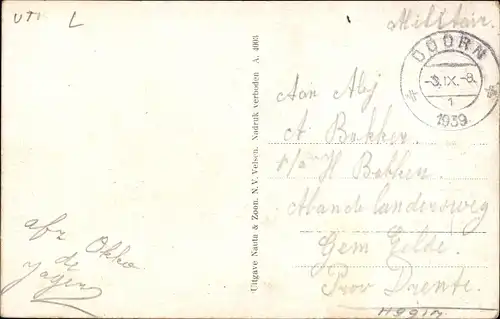 UTR L
Militair.
DOORN
-3.IX.-8.
1
1939
Uitgave Nauta & Zoon. N.V. Velsen. Nadruk verboden A. 4003
Aan
A Bakker
H Bakker
Gem Zelde.
Prov Drente.
afz Okko
de
Jager